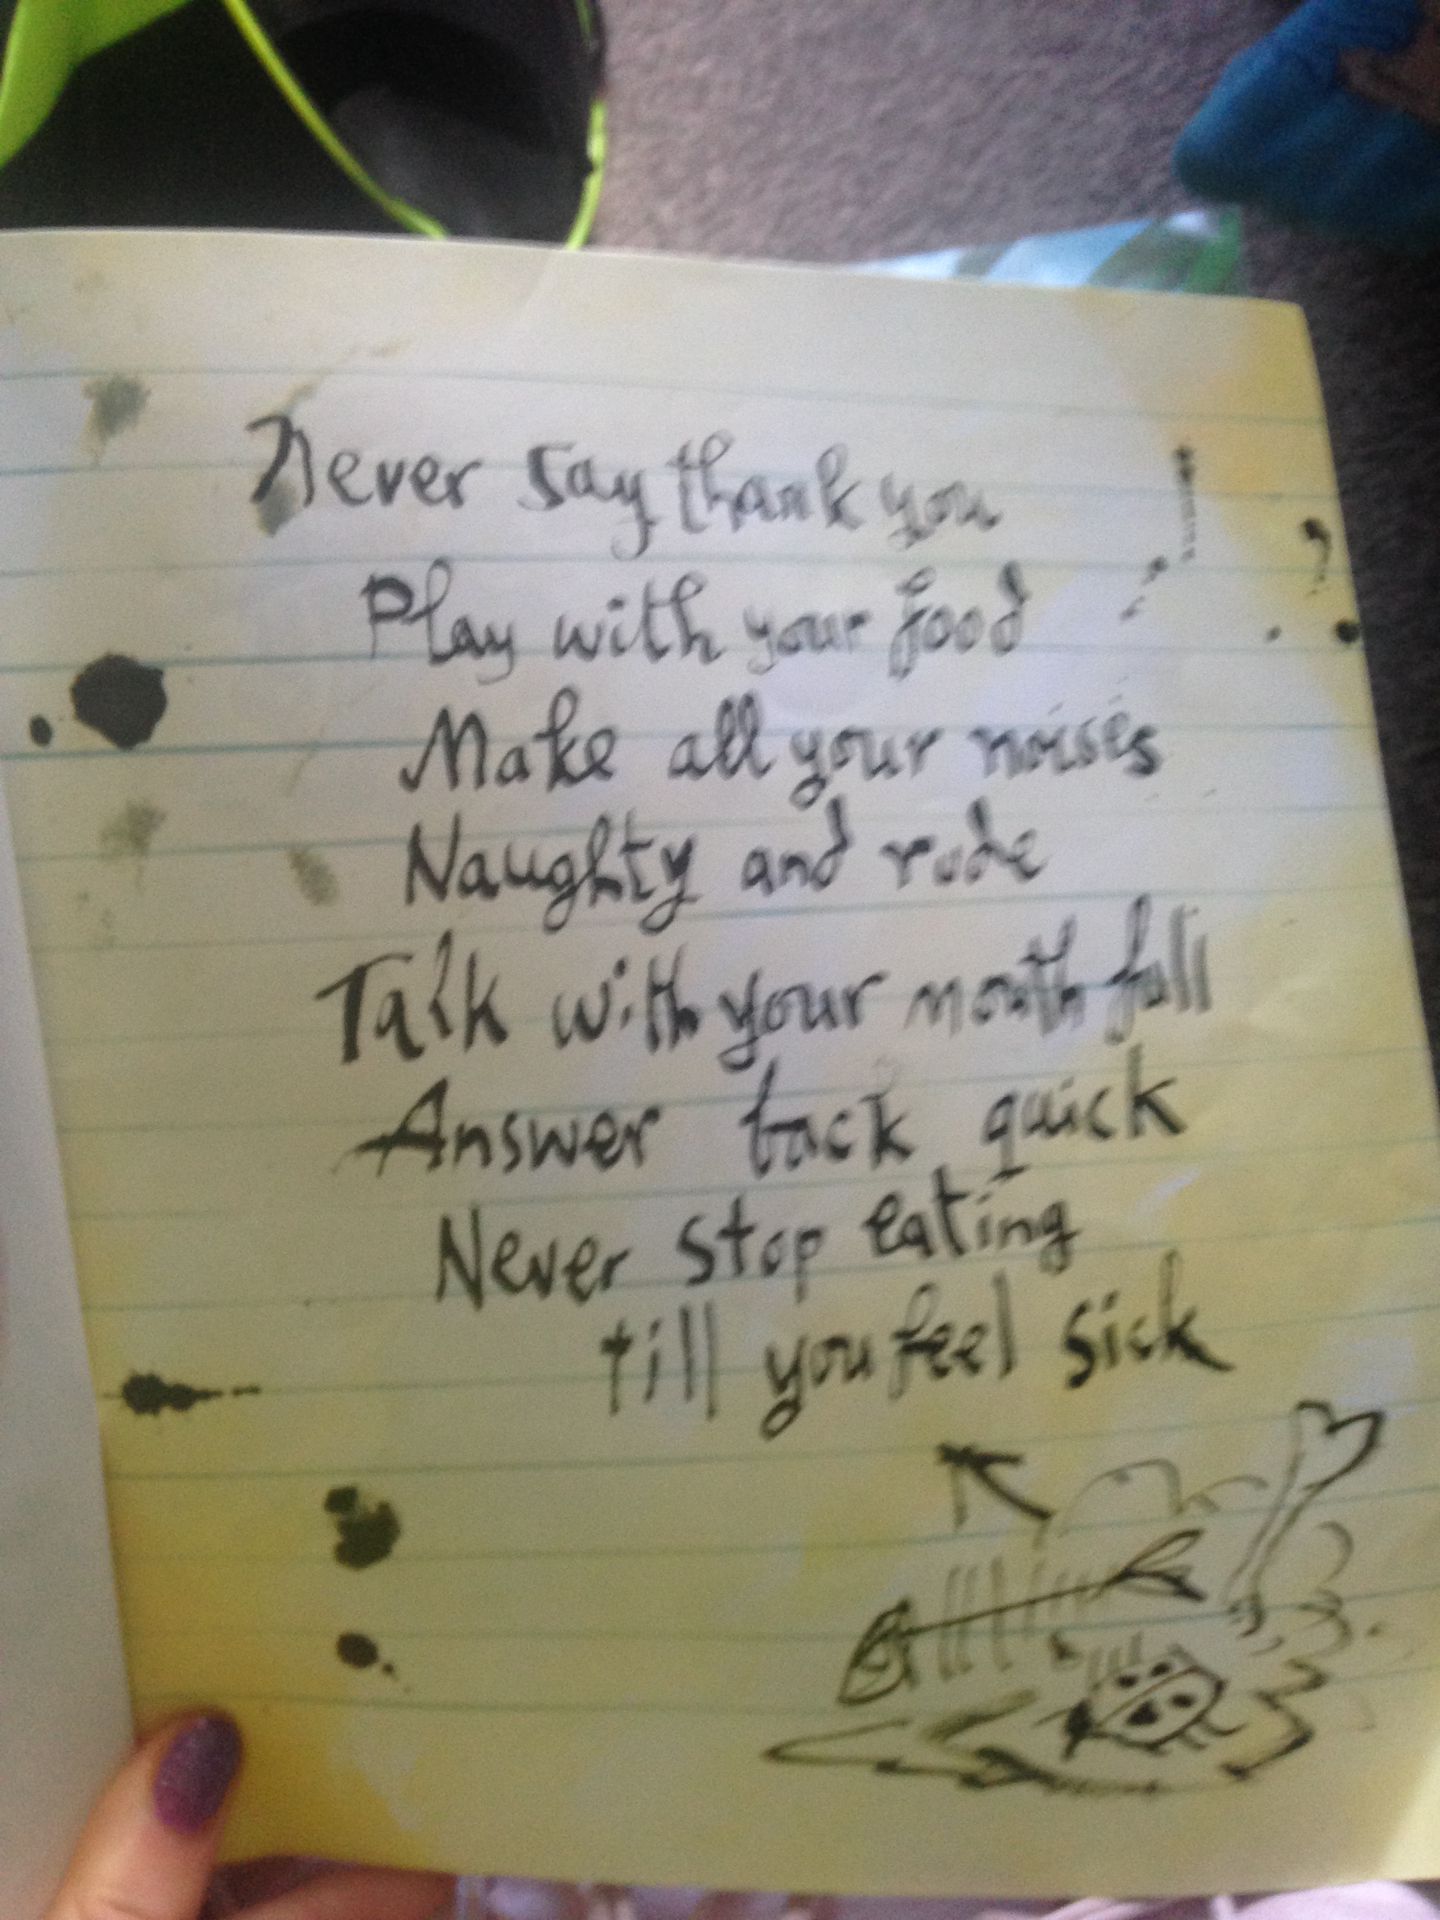 Never say thank you
Play with your food
Make all your noises
Naughty and rude
Talk with your mouth full
Answer back quick
Never stop eating
till you feel sick